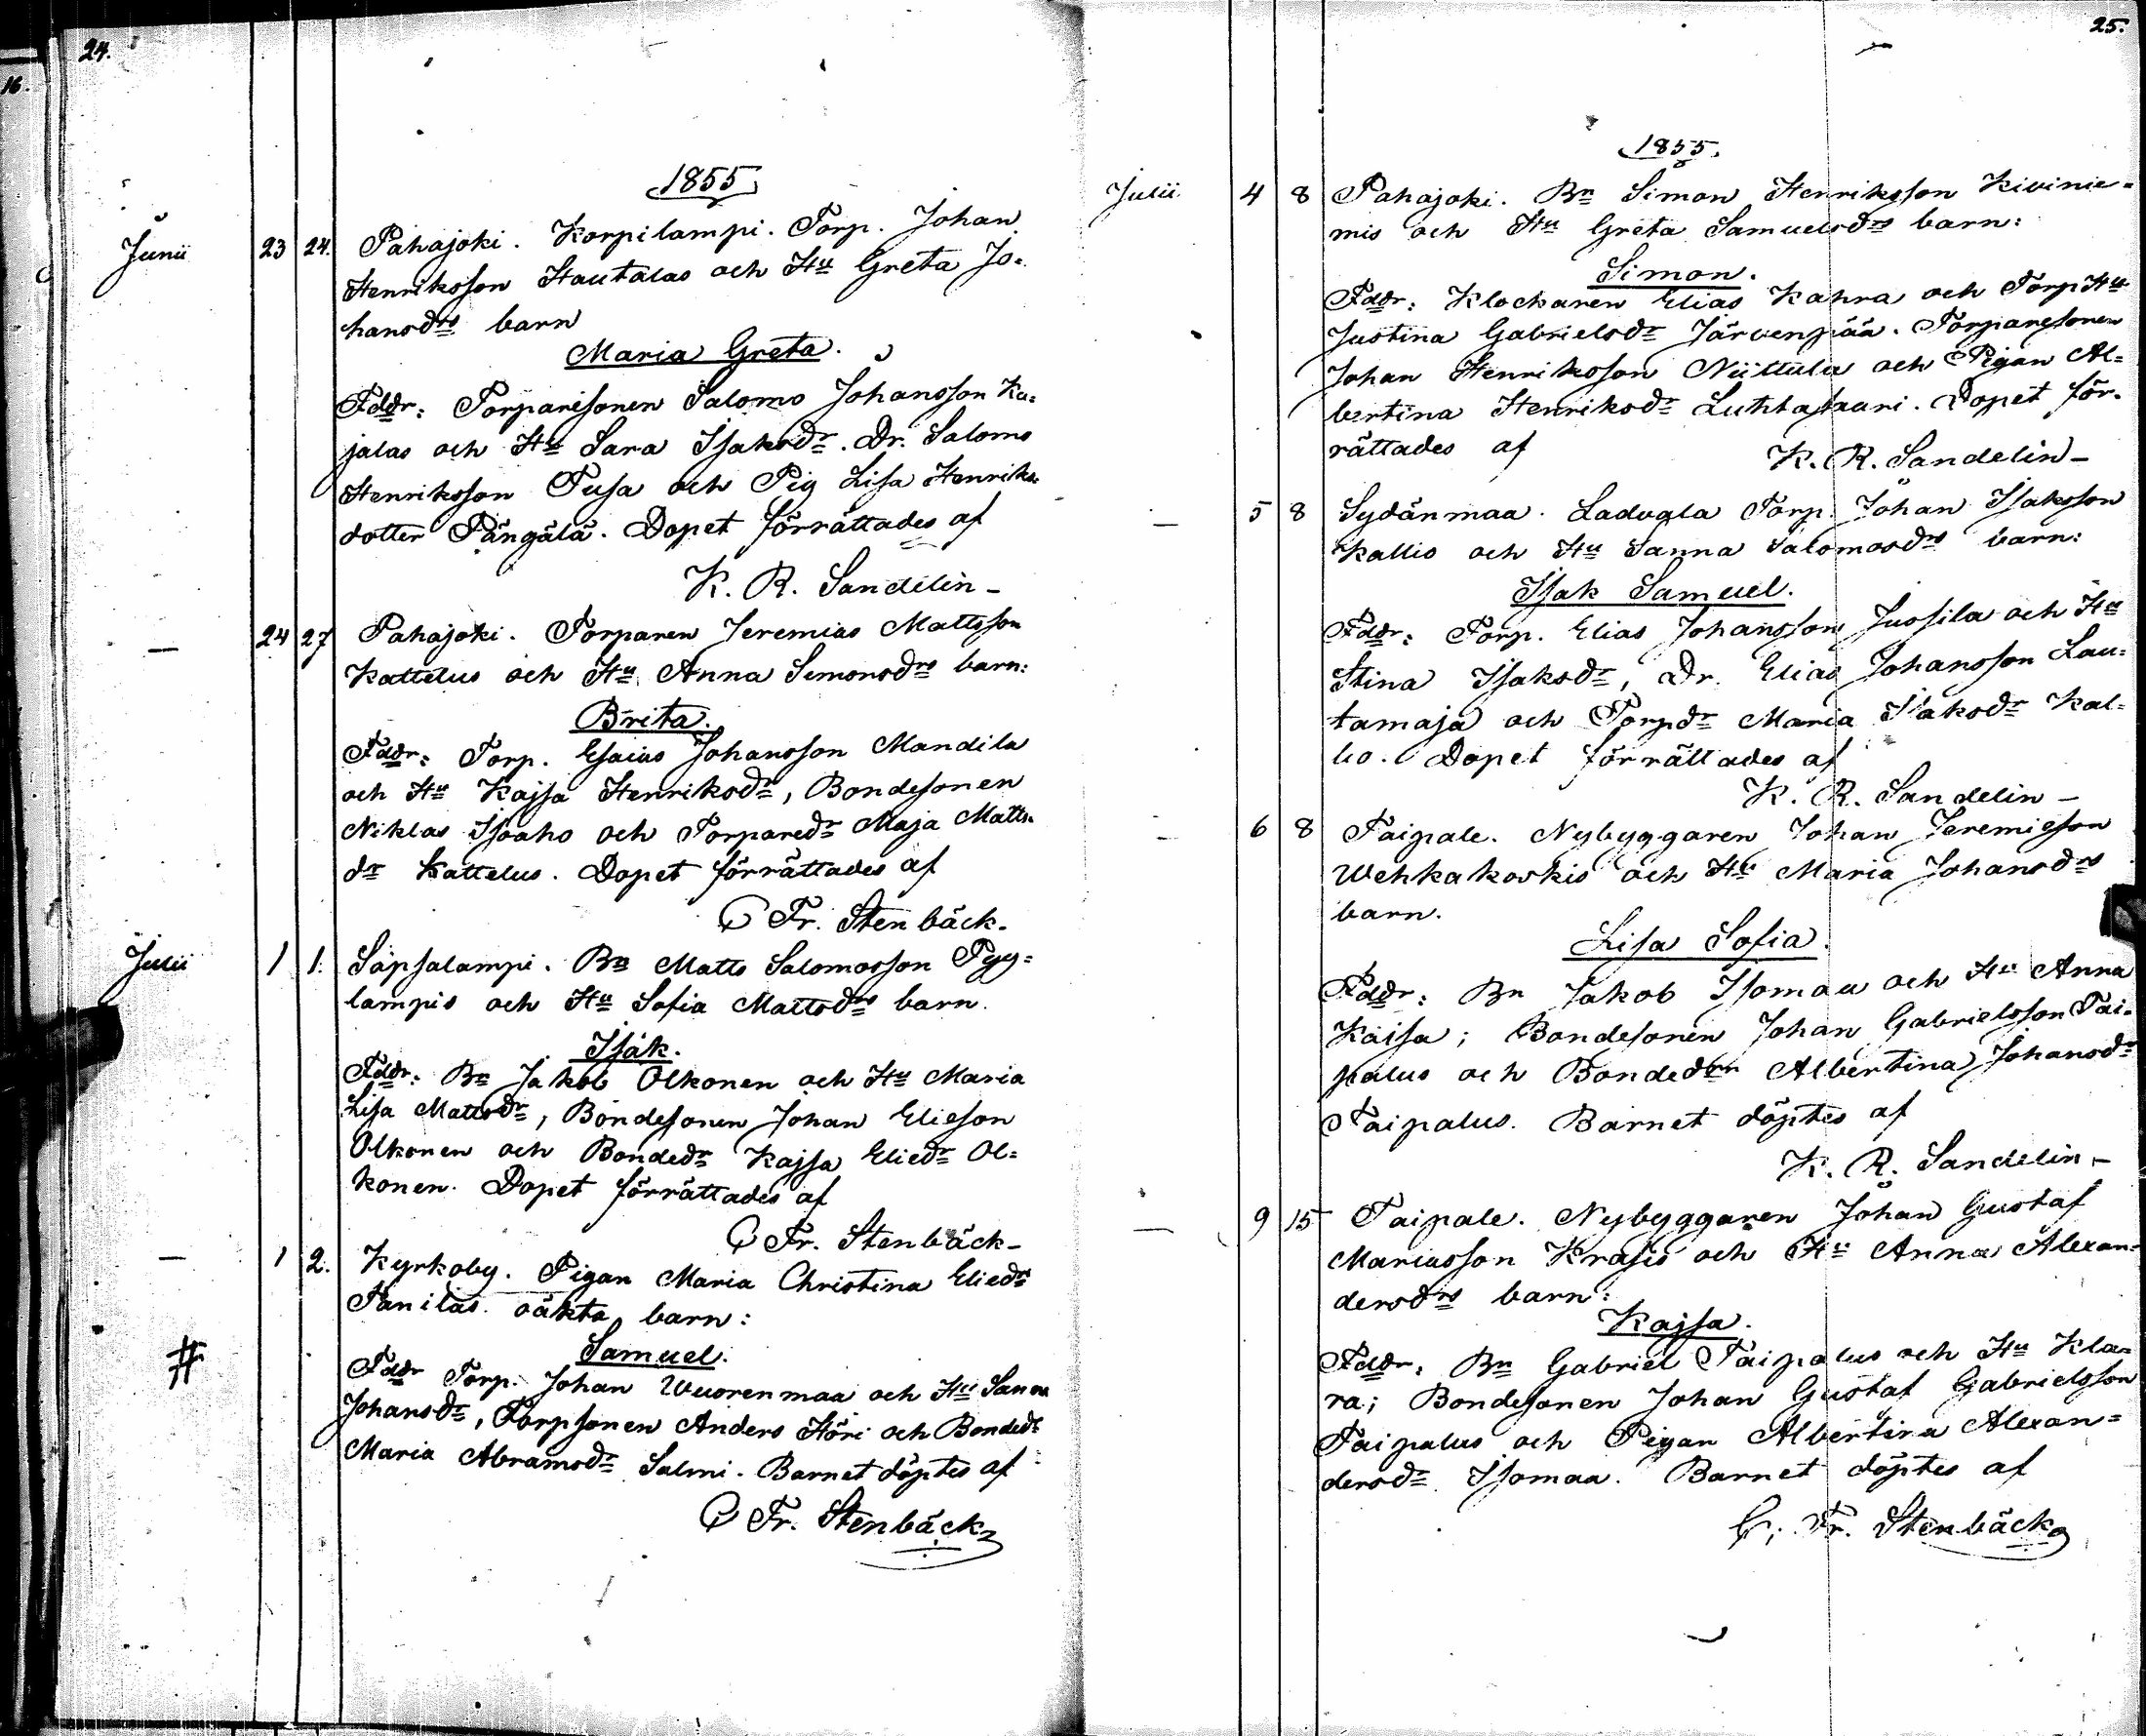 24.
16.
1855
Junii 23 24. Pahajoki. Korpilampi. Torp. Johan
Henriksson Hautalas och Hu Greta Jo=
hansdrs barn
Maria Greta.
Fddr: Torparesonen Salomo Johansson Ka=
jalas och Hu Sara Isaksdr. Dr. Salomo
Henriksson Tusa och Pig Lisa Henriks
dotter Pängälä. Dopet förrättades af
K. R. Sandelin_
— 24 27 Pahajoki. Torparen Jeremias Mattsson
Kattelus och Hu Anna Simonsdrs barn:
Brita.
Fddr: Torp. Esaias Johansson Mandila
och Hu Kajsa Henriksdr, Bondesonen
Niklas Isoaho och Torparedr Maja Matts
dr Kattelus. Dopet förrättades af
C Fr. Stenbäck.
Julii 1 1. Säpsalampi. Bn Matts Salomosson Pyy=
lampis och Hu Sofia Mattsdrs barn.
Isak.
Fddr: Bn Jakob Olkonen och Hu Maria
Lisa Mattsdr, Bondesonen Johan Elieson
Olkonen och Bondedr Kajsa Eliedr Ol=
konen. Dopet förrättades af
C Fr. Stenbäck_
— 1 2. Kyrkoby. Pigan Maria Christina Eliedr
Panilas oäkta barn:
Samuel.
# Fddr Torp. Johan Wuorenmaa och Hu Sanna
Johansdr, Torpsonen Anders Höri och Bondedr
Maria Abramsdr Salmi. Barnet döptes af
C Fr. Stenbäck
25.
1855.
Julii 4 8 Pahajoki. Bn Simon Henriksson Kivinie=
mis och Hu Greta Samuelsdrs barn:
Simon.
Fddr: Klockaren Elias Kahra och Torp Hu
Justina Gabrielsdr Järvenpää. Torparesonen
Johan Henriksson Niittula och Pigan Al=
bertina Henriksdr Luhtasaari. Dopet för=
rättades af
K. R. Sandelin_
— 5 8 Sydänmaa. Ladugla Torp. Johan Isaksson
Kallio och Hu Sanna Salomosdrs barn:
Isak Samuel.
Fddr: Torp. Elias Johansson Jussila och Hu
Stina Isaksdr, Dr. Elias Johansson Lau=
tamaja och Torpdr Maria Isaksdr Kal=
lio. Dopet förrättades af
K. R. Sandelin_
— 6 8 Taipale. Nybyggaren Johan Jeremieson
Wehkakoskis och Hu Maria Johansdrs
barn.
Lisa Sofia.
Fddr: Bn Jakob Isomaa och Hu Anna
Kaisa; Bondesonen Johan Gabrielsson Tai=
palus och Bondedrn Albertina Johansdr
Taipalus. Barnet döptes af
K. R. Sandelin_
— 9 15 Taipale. Nybyggaren Johan Gustaf
Mariasson Krasis och Hu Anna Alexan=
dersdrs barn:
Kajsa.
Fddr: Bn Gabriel Taipalus och Hu Kla=
ra; Bondesonen Johan Gustaf Gabrielsson
Taipalus och Pigan Albertina Alexan=
dersdr Isomaa. Barnet döptes af
C. Fr. Stenbäck